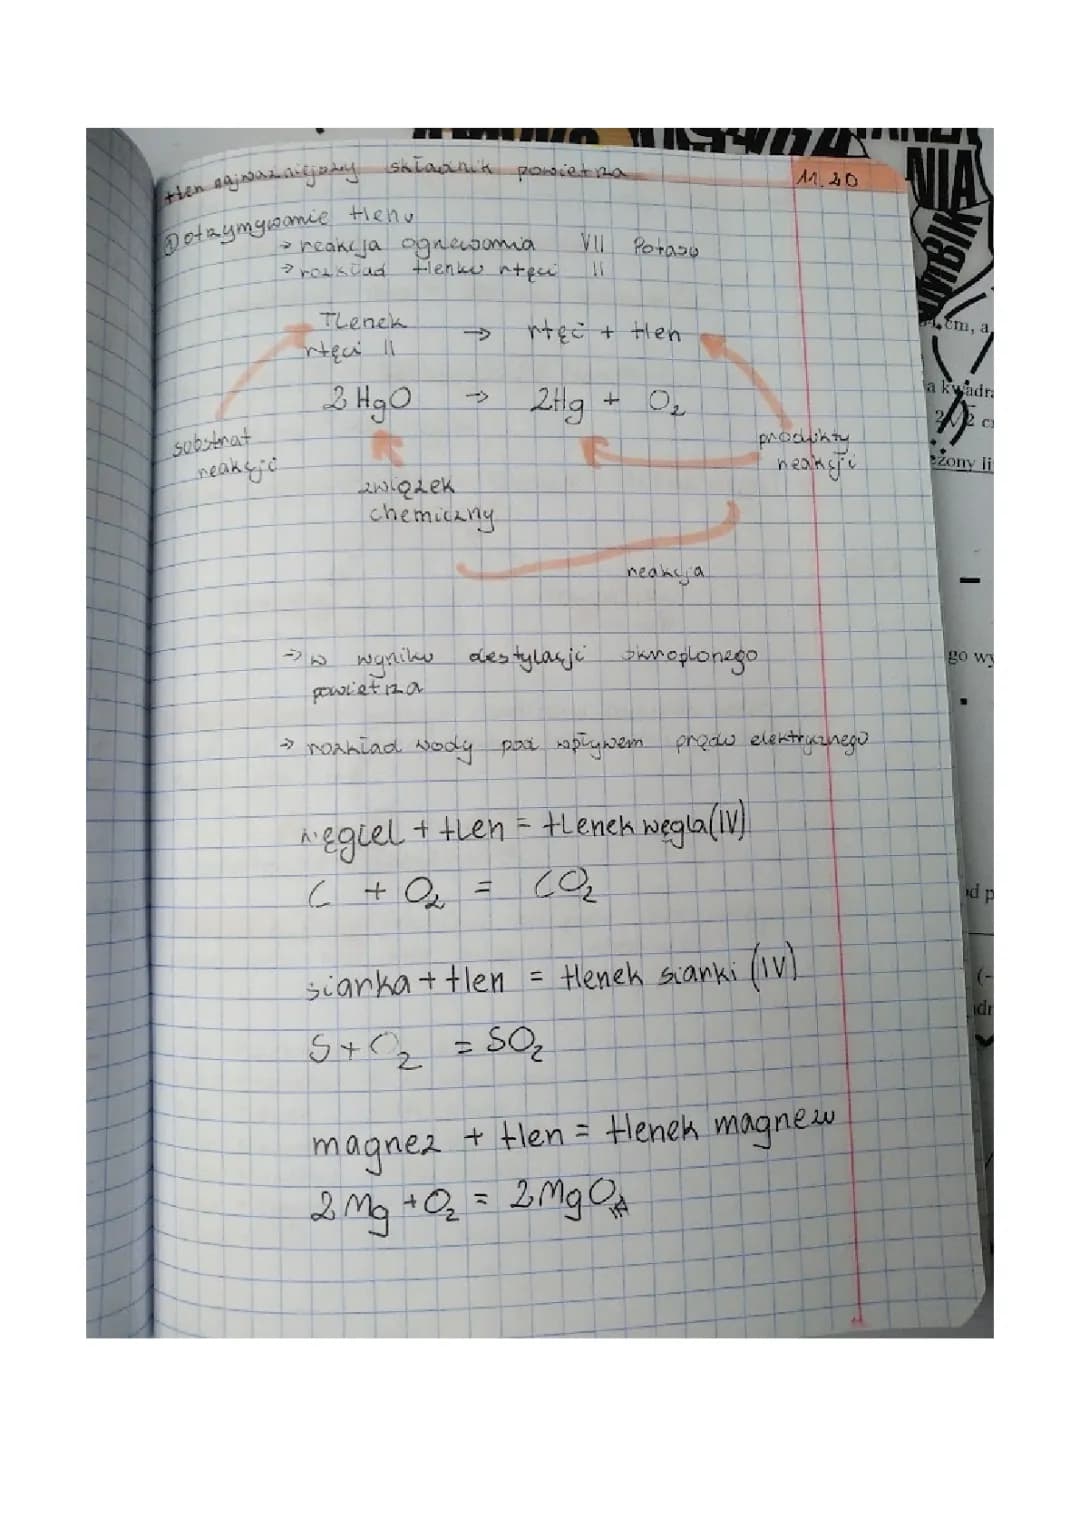 tlen najważniejszy składnik powietrza 11.20
① otrzymywanie tlenu
→ reakcja ogrzewania VII Potasu
→ rozkład tlenku rtęci II
Tlenek → rtęć + tlen
rtęci II
2 HgO → 2Hg + O₂
substrat
reakcji
produkty
reakcji
związek
chemiczny
reakcja
→ w wyniku destylacji skroplonego
powietrza
→ rozkład wody pod wpływem prądu elektrycznego
węgiel + tlen = tlenek węgla (IV)
C + O₂ = CO₂
siarka + tlen = tlenek siarki (IV)
S + O₂ = SO₂
magnez + tlen = tlenek magnezu
2 Mg + O₂ = 2 MgO
NIA
MBIK
cm, a
a kwadra
2√2 c
eżony li
go wy
od p